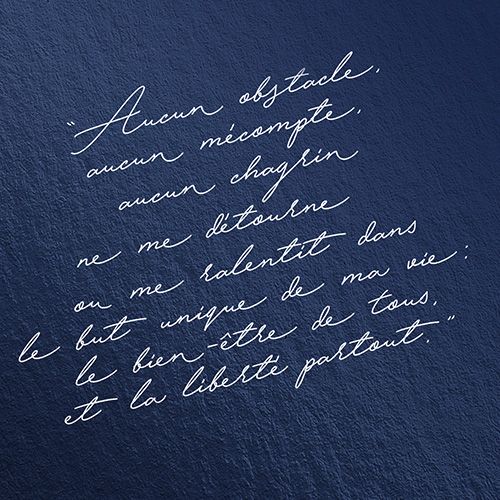 “Aucun obstacle,
aucun mécompte,
aucun chagrin
ne me détourne
ou me ralentit dans
le but unique de ma vie :
le bien-être de tous,
et la liberté partout.”